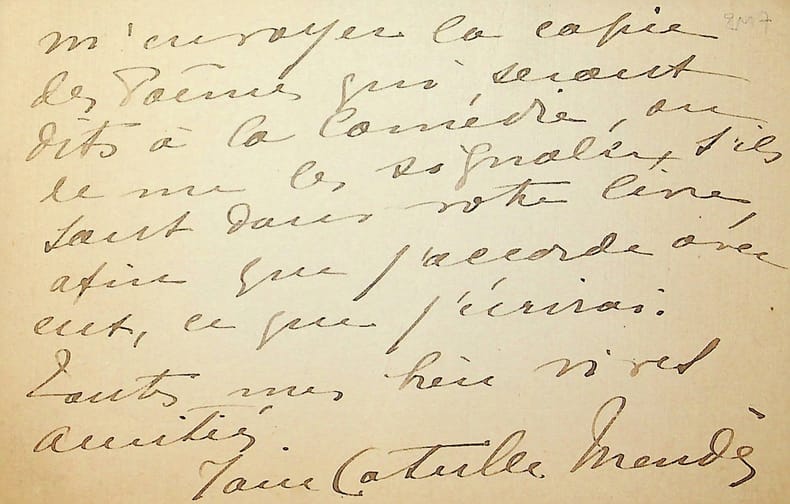 m'envoyer la copie
des Poèmes qui seront
dits à la Comédie, ou
de me les signaler, s'ils
sont dans votre livre,
afin que j'accorde avec
eux, ce que j'écrirai.
Toutes mes bien vives
amitiés.
Jane Catulle Mendès